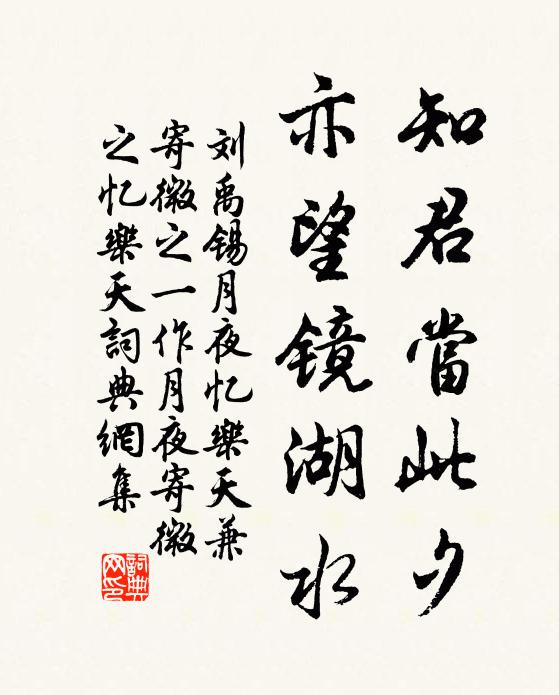 知君當此夕
亦望镜湖水
刘禹锡月夜忆樂天兼
寄微之一作月夜寄微
之忆樂天詞典網集
詞典
网印